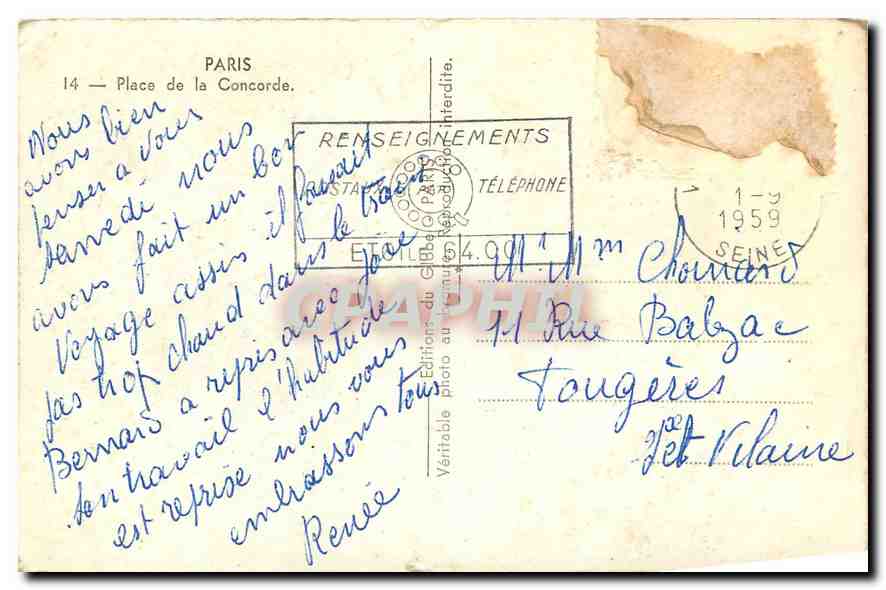 PARIS
14 — Place de la Concorde.
Nous
avons bien
penser a vous
samedi nous
avons fait un bon
voyage assis il faisait
pas trop chaud dans le train
Bernard a repris avec joie
son travail l'habitude
est reprise nous vous
embrassons tous
Renée
Editions du Globe
Véritable photo au bromure, Reproduction interdite.
RENSEIGNEMENTS
POSTAUX PARIS TÉLÉPHONE
1-9
1959
SEINE
CPAPHIL
Mr Mme Chouard
11 Rue Balzac
Fougères
Ile et Vilaine